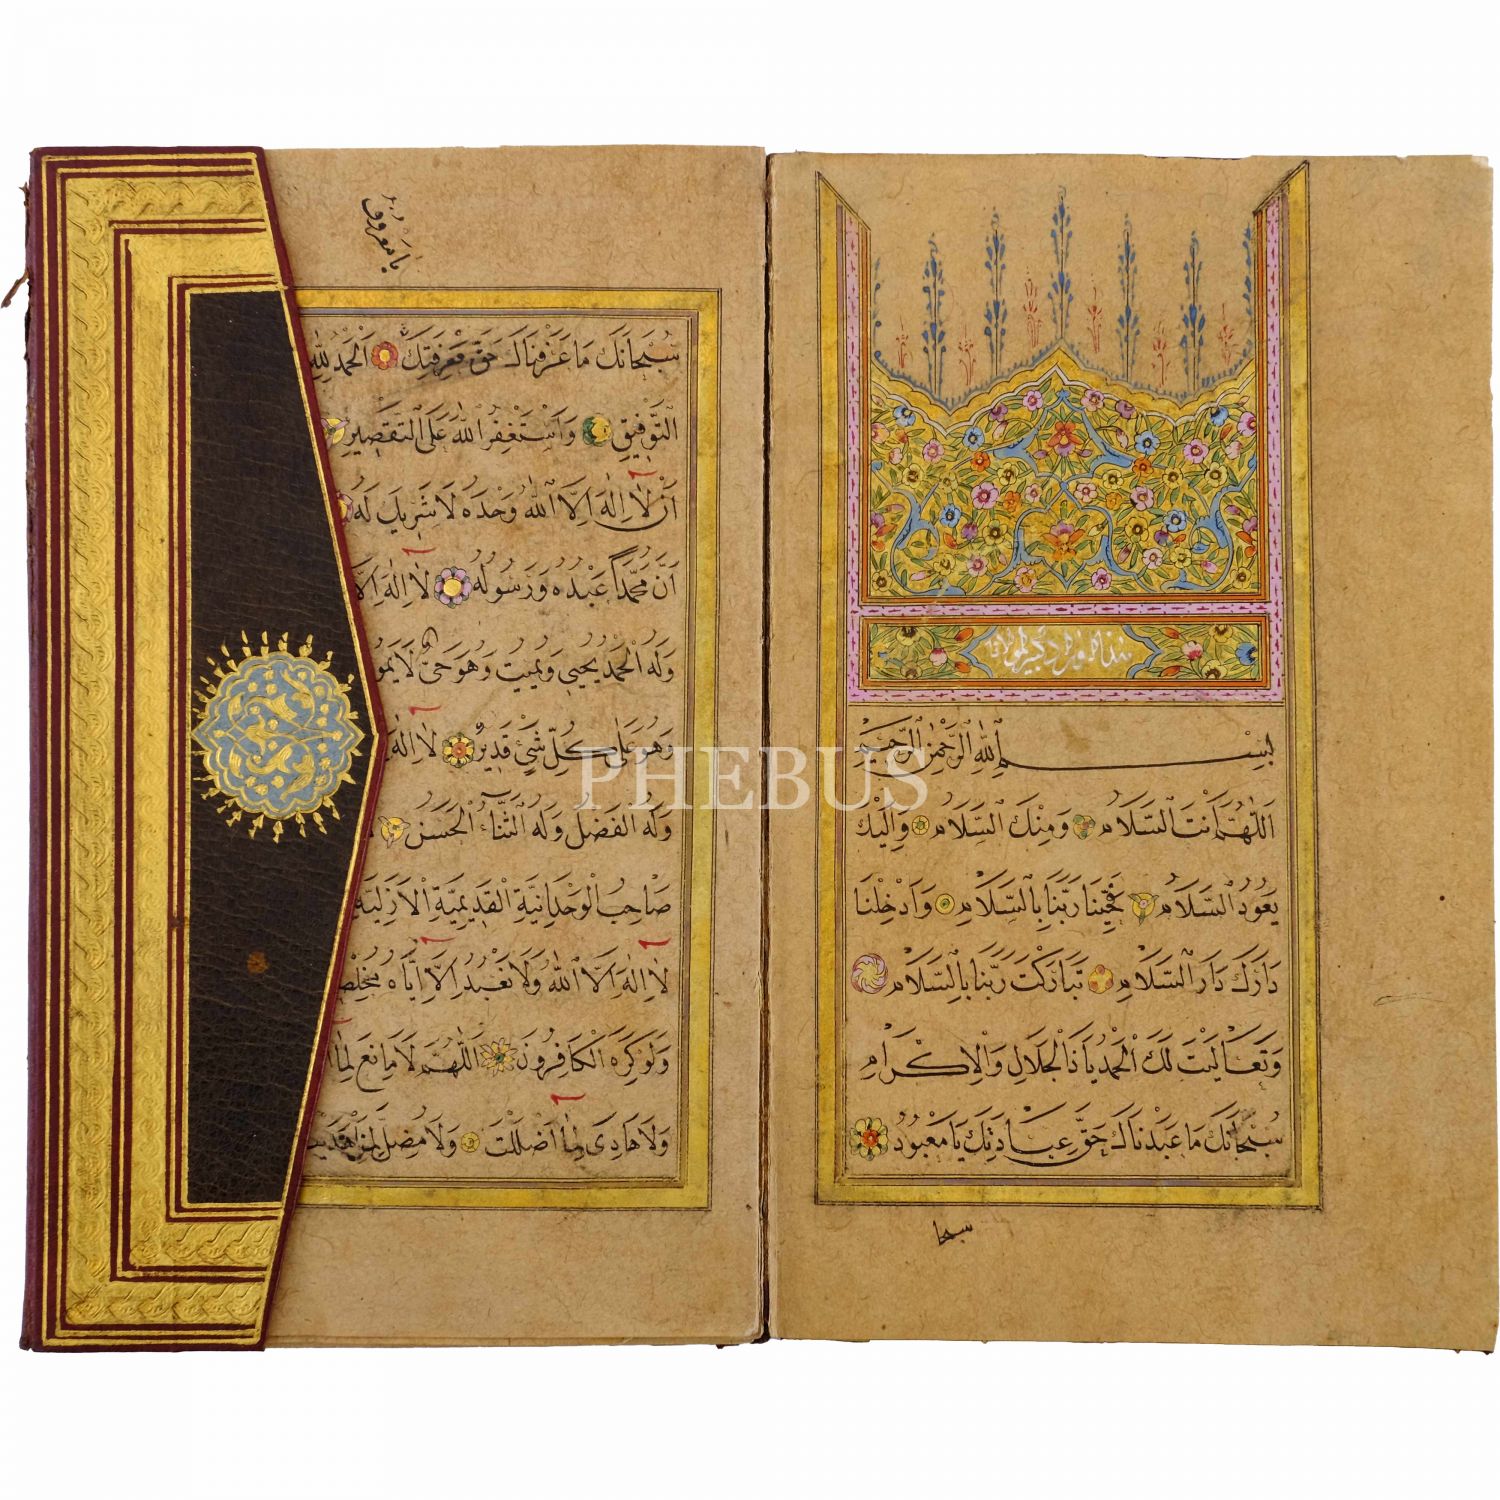 بِسْمِ اللهِ الرَّحْمٰنِ الرَّحِيمِ
اَللّٰهُمَّ اَنْتَ السَّلَامُ وَمِنْكَ السَّلَامُ وَاِلَيْكَ
يَعُودُ السَّلَامُ فَحَيِّنَا رَبَّنَا بِالسَّلَامِ وَاَدْخِلْنَا
دَارَكَ دَارَ السَّلَامِ تَبَارَكْتَ رَبَّنَا بِالسَّلَامِ
وَتَعَالَيْتَ لَكَ الْحَمْدُ يَا ذَا الْجَلَالِ وَالْاِكْرَامِ
سُبْحَانَكَ مَا عَبَدْنَاكَ حَقَّ عِبَادَتِكَ يَا مَعْبُودُ
سبحا
يَا مَعْرُوفُ
سُبْحَانَكَ مَا عَرَفْنَاكَ حَقَّ مَعْرِفَتِكَ اَلْحَمْدُ لِلّٰهِ
التَّوْفِيقِ وَاَسْتَغْفِرُ اللهَ عَلَى التَّقْصِيرِ
اَنْ لَا اِلٰهَ اِلَّا اللهُ وَحْدَهُ لَا شَرِيكَ لَهُ
اَنَّ مُحَمَّدًا عَبْدُهُ وَرَسُولُهُ لَا اِلٰهَ اِلَّا
وَلَهُ الْحَمْدُ يُحْيِي وَيُمِيتُ وَهُوَ حَيٌّ لَا يَمُو
وَهُوَ عَلَى كُلِّ شَيْءٍ قَدِيرٌ لَا اِلٰهَ
وَلَهُ الْفَضْلُ وَلَهُ الثَّنَاءُ الْحَسَنُ
صَاحِبُ الْوَحْدَانِيَّةِ الْقَدِيمِيَّةِ الْاَزَلِيَّةِ
لَا اِلٰهَ اِلَّا اللهُ وَلَا نَعْبُدُ اِلَّا اِيَّاهُ مُخْلِصِ
وَلَوْ كَرِهَ الْكَافِرُونَ اَللّٰهُمَّ لَا مَانِعَ لِمَا
وَلَا هَادِيَ لِمَا اَضْلَلْتَ وَلَا مُضِلَّ لِمَنْ هَدَيْتَ
PHEBUS